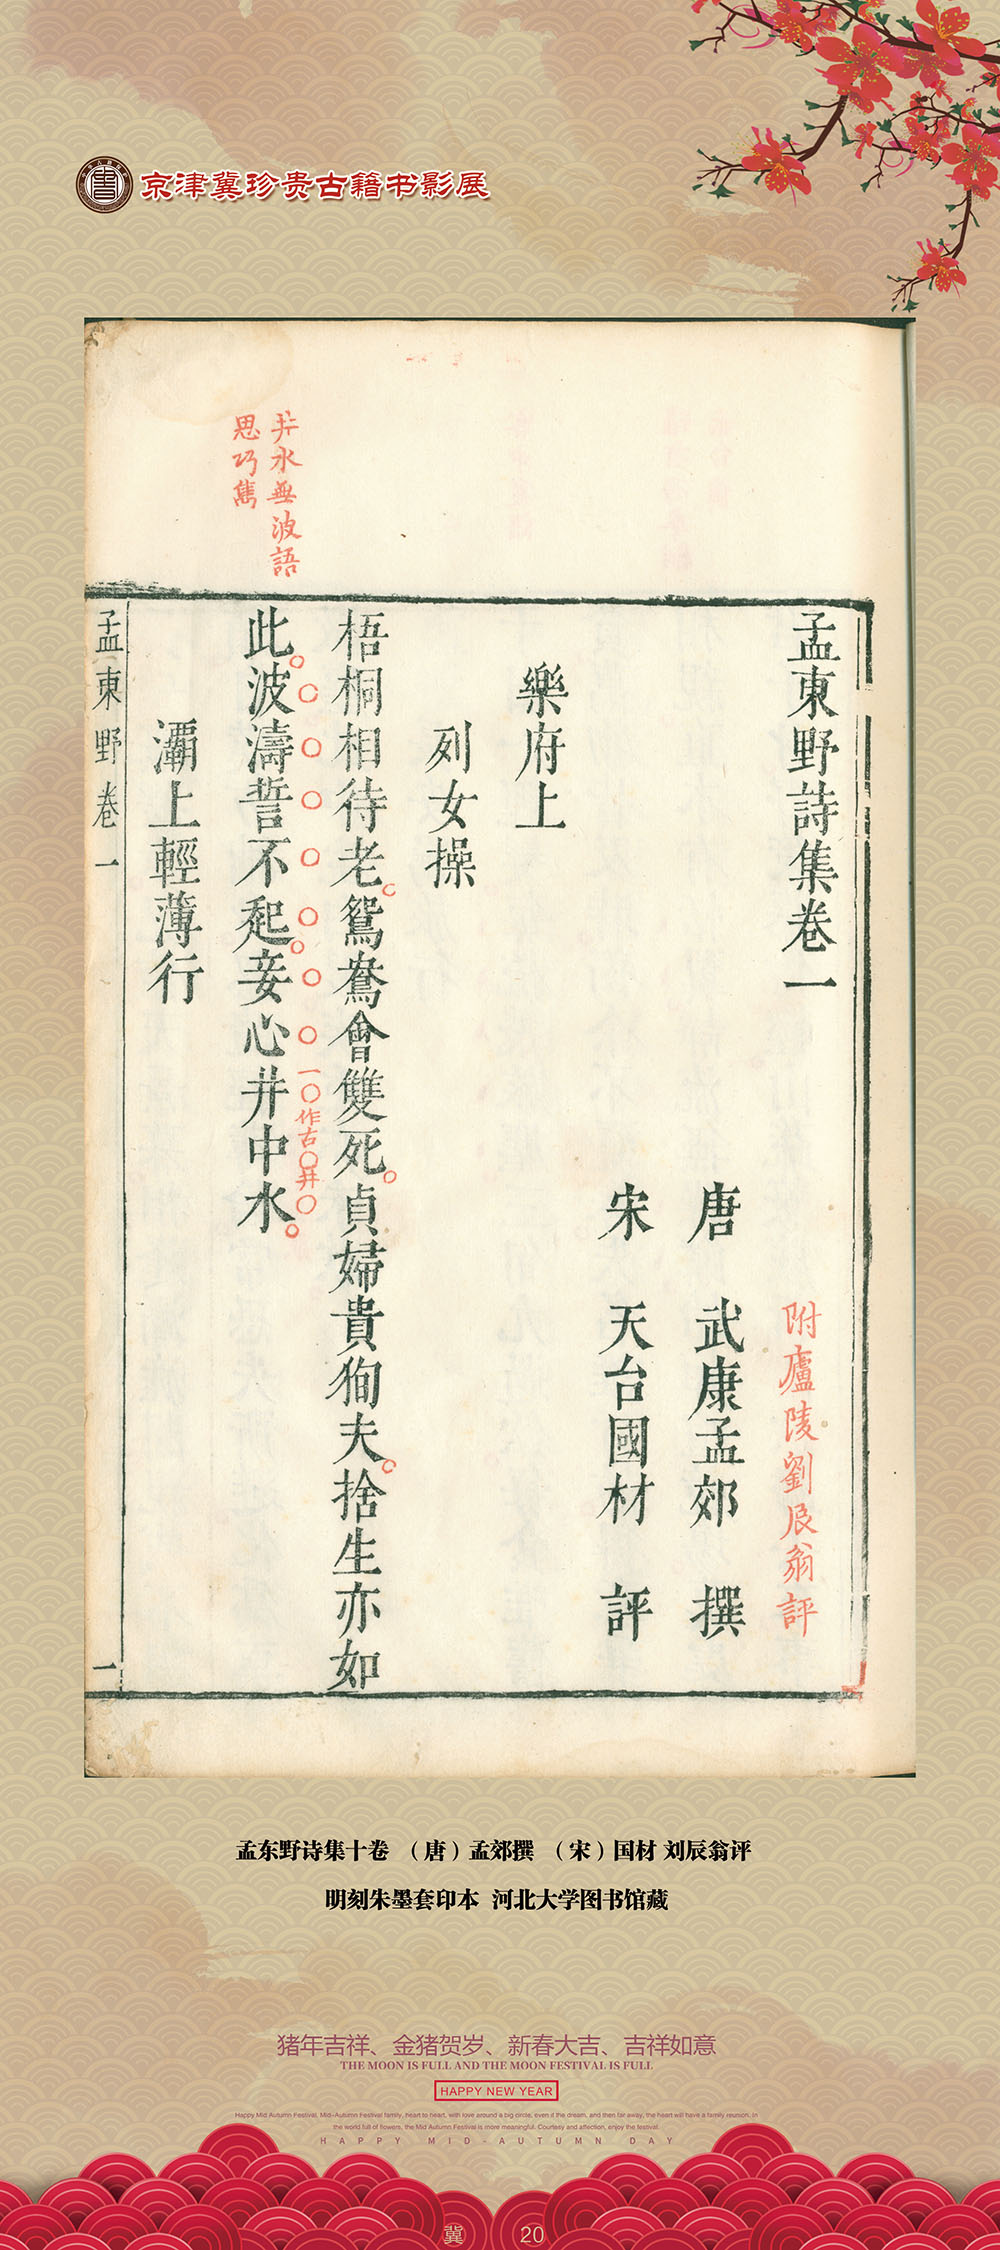 京津冀珍贵古籍书影展
孟東野詩集卷一
附廬陵劉辰翁評
唐 武康孟郊 撰
宋 天台國材 評
樂府上
列女操
梧桐相待老鴛鴦會雙死貞婦貴徇夫捨生亦如
一作古井
此波濤誓不起妾心井中水
井水無波語
思巧雋
灞上輕薄行
孟東野卷一
一
孟东野诗集十卷 （唐）孟郊撰 （宋）国材 刘辰翁评
明刻朱墨套印本 河北大学图书馆藏
猪年吉祥、金猪贺岁、新春大吉、吉祥如意
THE MOON IS FULL AND THE MOON FESTIVAL IS FULL
HAPPY NEW YEAR
Happy Mid Autumn Festival, Mid-Autumn Festival family, heart to heart, with love around a big circle, even if the dream, and then far away, the heart will have a family reunion. In
the world full of flowers, the Mid Autumn Festival is more meaningful. Courtesy and affection, enjoy the festival.
HAPPY MID-AUTUMN DAY
冀 20